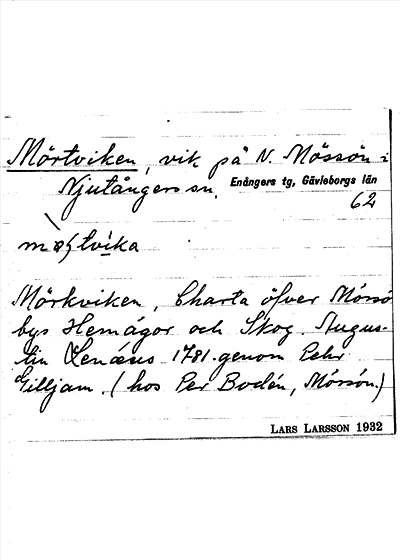 Mörtviken, vik på N. Mössön i
Njutångers sn.
Enångers tg, Gävleborgs län
62
Mörkviken, Charta öfver Mörsö
bys Hemägor och Skog. Augus-
tin Lenæus 1781 genom Pehr
Gilljam. (hos Per Bodén, Mörsön.)
LARS LARSSON 1932